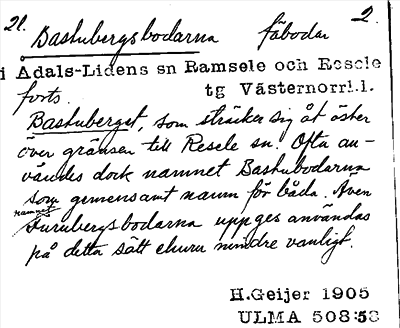 21. Bastubergsbodarna fäbodar 2.
i Ådals-Lidens sn Ramsele och Resele
forts. tg Västernorrl.l.
Bastuberget, som sträcker sig åt öster
över gränsen till Resele sn. Ofta an-
vändes dock namnet Bastubodarna
som gemensamt namn för båda. Även
namnet
Furubergsbodarna uppges användas
på detta sätt ehuru mindre vanligt.
H.Geijer 1905
ULMA 508:58